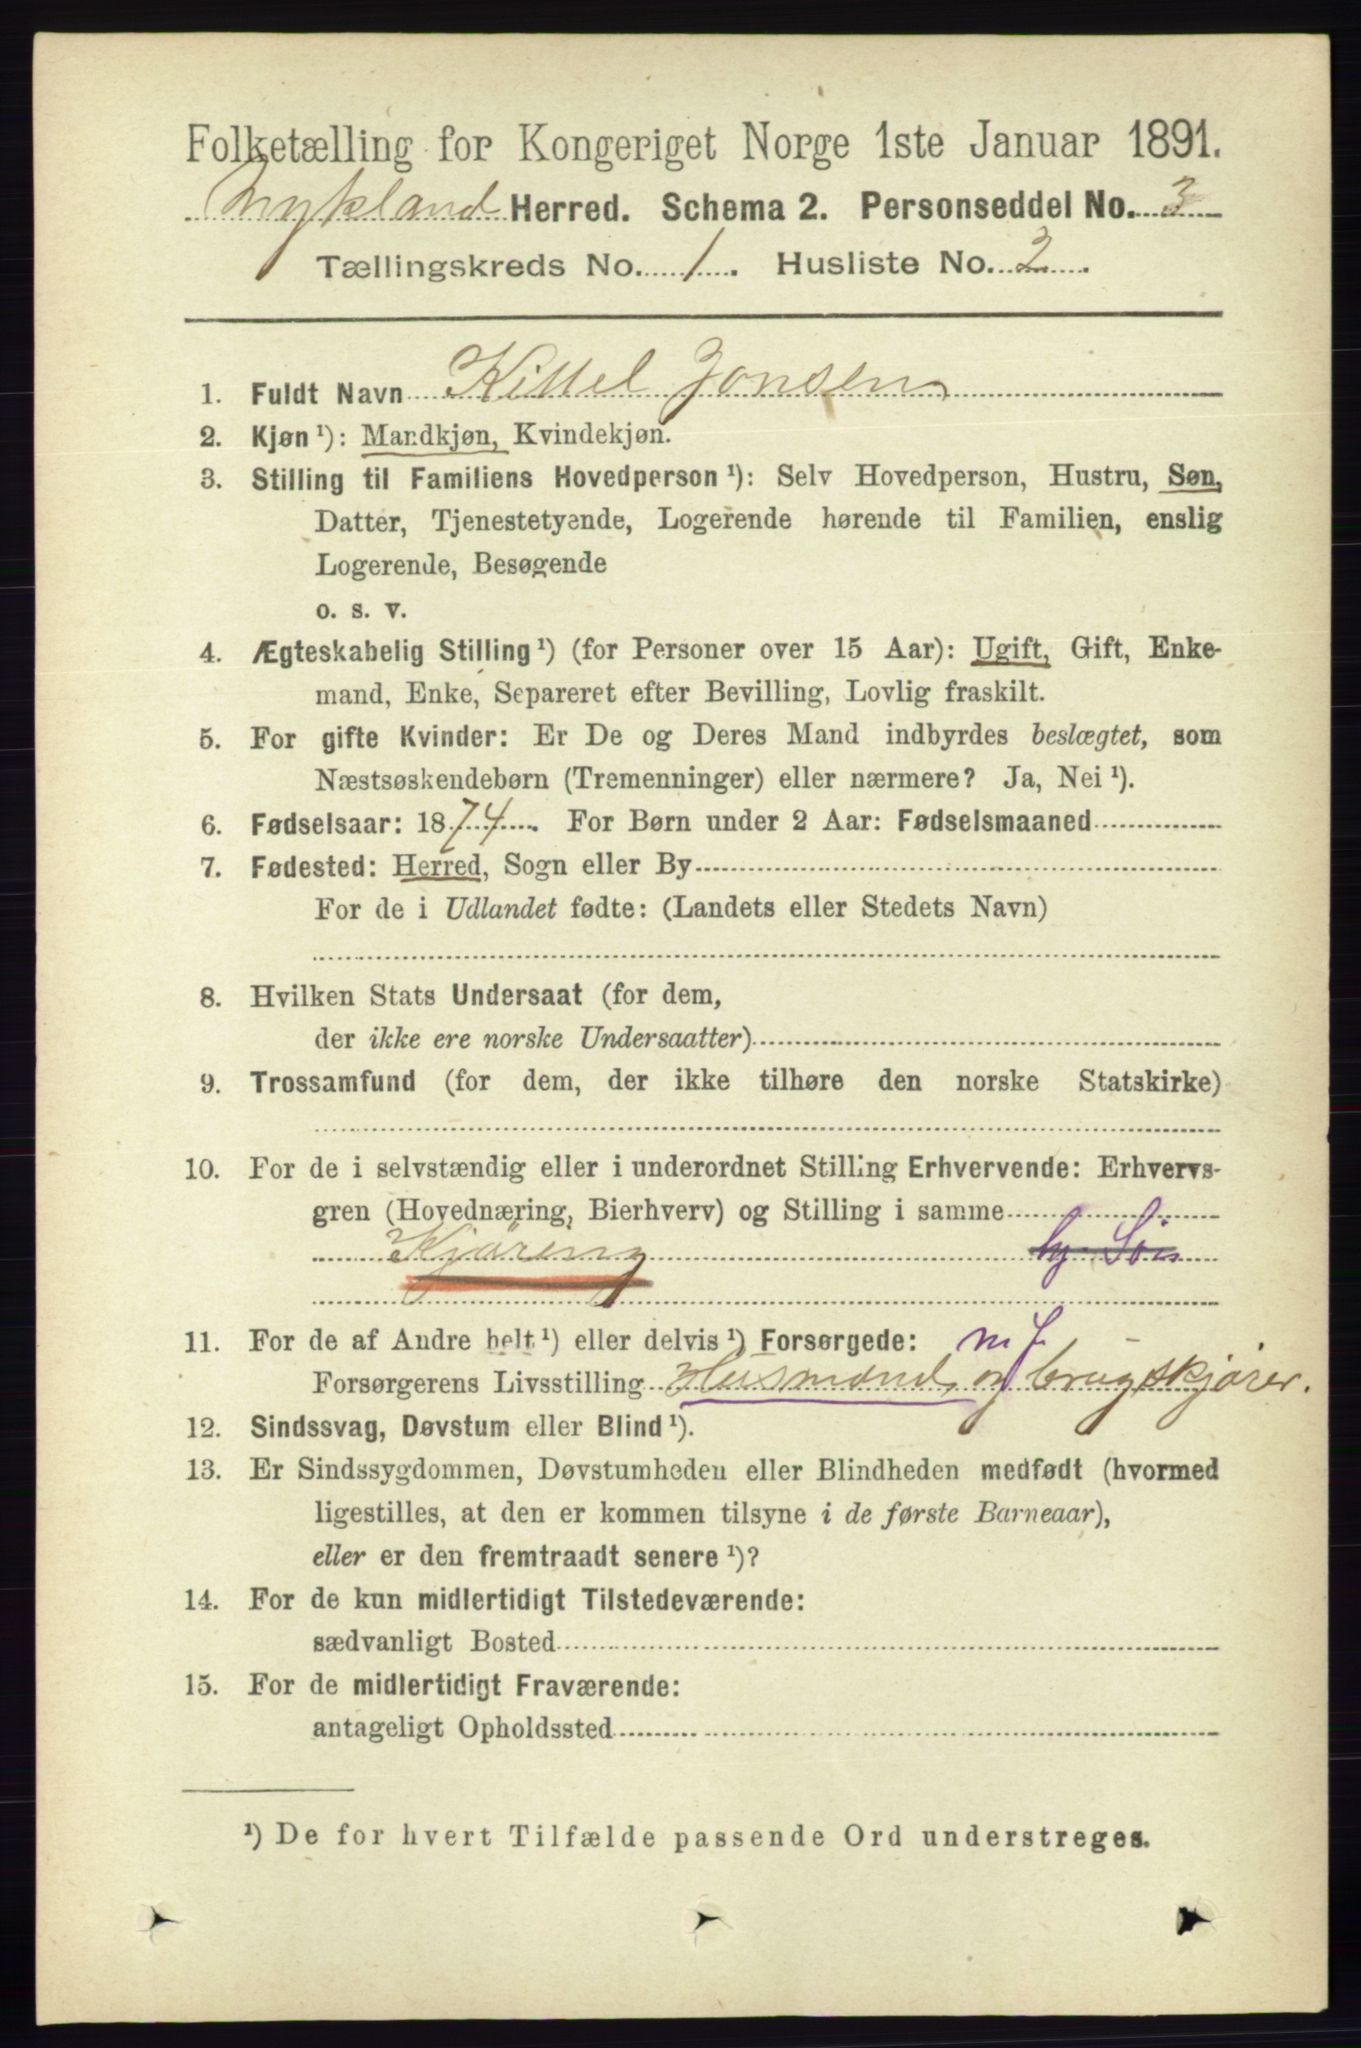 Folketælling for Kongeriget Norge 1ste Januar 1891.
Mykland Herred. Schema 2. Personseddel No. 3
Tællingskreds No. 1. Husliste No. 2.
1. Fuldt Navn Kittel Jonsen
2. Kjøn ¹): Mandkjøn, Kvindekjøn.
3. Stilling til Familiens Hovedperson ¹): Selv Hovedperson, Hustru, Søn,
Datter, Tjenestetyende, Logerende hørende til Familien, enslig
Logerende, Besøgende
o. s. v.
4. Ægteskabelig Stilling ¹) (for Personer over 15 Aar): Ugift, Gift, Enke-
mand, Enke, Separeret efter Bevilling, Lovlig fraskilt.
5. For gifte Kvinder: Er De og Deres Mand indbyrdes beslægtet, som
Næstsøskendebørn (Tremenninger) eller nærmere? Ja, Nei ¹).
6. Fødselsaar: 1874. For Børn under 2 Aar: Fødselsmaaned
7. Fødested: Herred, Sogn eller By
For de i Udlandet fødte: (Landets eller Stedets Navn)
8. Hvilken Stats Undersaat (for dem,
der ikke ere norske Undersaatter)
9. Trossamfund (for dem, der ikke tilhøre den norske Statskirke)
10. For de i selvstændig eller i underordnet Stilling Erhvervende: Erhvervs-
gren (Hovednæring, Bierhverv) og Stilling i samme
Kjøring hj. Søn
11. For de af Andre helt ¹) eller delvis ¹) Forsørgede: m J
Forsørgerens Livsstilling Husmand og brugskjører.
12. Sindssvag, Døvstum eller Blind ¹).
13. Er Sindssygdommen, Døvstumheden eller Blindheden medfødt (hvormed
ligestilles, at den er kommen tilsyne i de første Barneaar),
eller er den fremtraadt senere ¹)?
14. For de kun midlertidigt Tilstedeværende:
sædvanligt Bosted
15. For de midlertidigt Fraværende:
antageligt Opholdssted
¹) De for hvert Tilfælde passende Ord understreges.